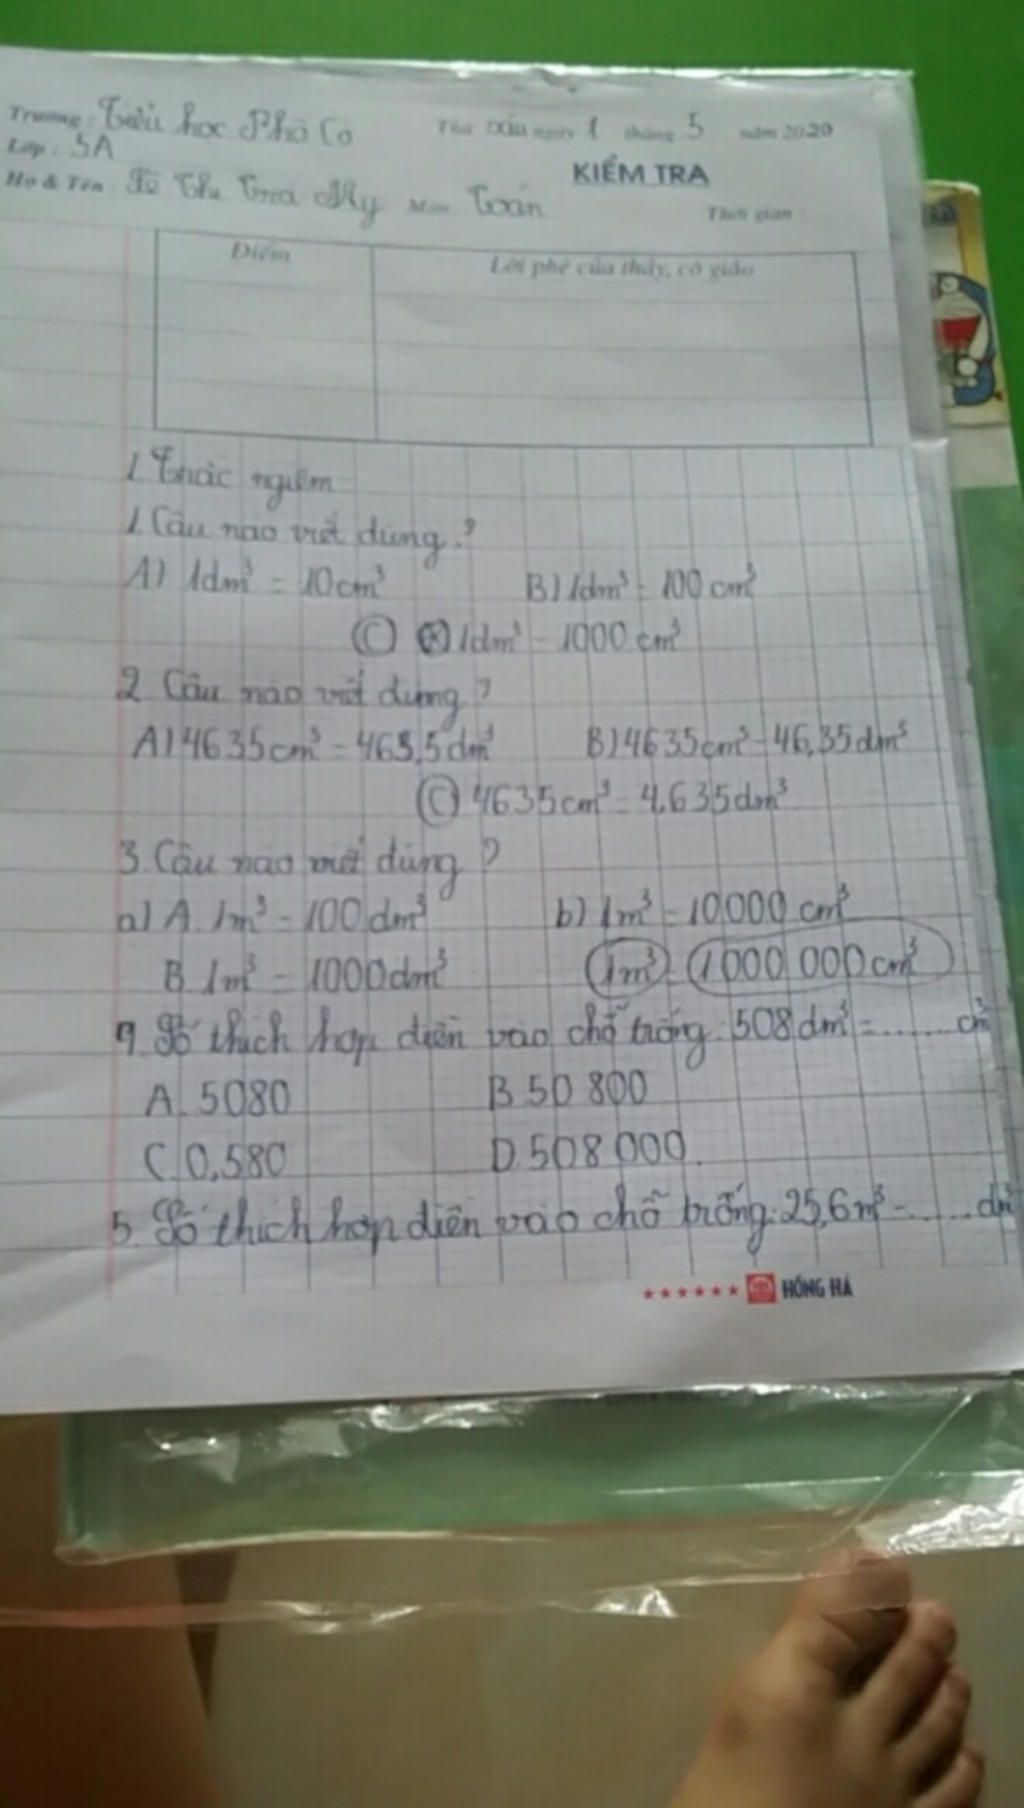 Trường: Tiểu học Phố Cò
Thứ sáu ngày 1 tháng 5 năm 2020
Lớp: 5A
KIỂM TRA
Họ & Tên: Tô Thị Trà My Môn Toán
Thời gian
Điểm
Lời phê của thầy, cô giáo
1. Trắc nghiêm
1. Câu nào viết đúng?
A) 1dm³ = 10cm³ B) 1dm³ = 100 cm³
C 1dm³ = 1000 cm³
2. Câu nào viết đúng?
A) 4635cm³ = 463,5dm³ B) 4635cm³ = 46,35dm³
C) 4635cm³ = 4,635dm³
3. Câu nào viết đúng?
a) A. 1m³ = 100dm³ b) 1m³ = 10000 cm³
B. 1m³ = 1000dm³ 1m³ = 1000 000cm³
4. Số thích hợp điền vào chỗ trống: 508dm³ = ...... cm³
A. 5080 B. 50 800
C. 0,580 D. 508 000.
5. Số thích hợp điền vào chỗ trống: 25,6m³ = ...... dm³
HỒNG HÀ